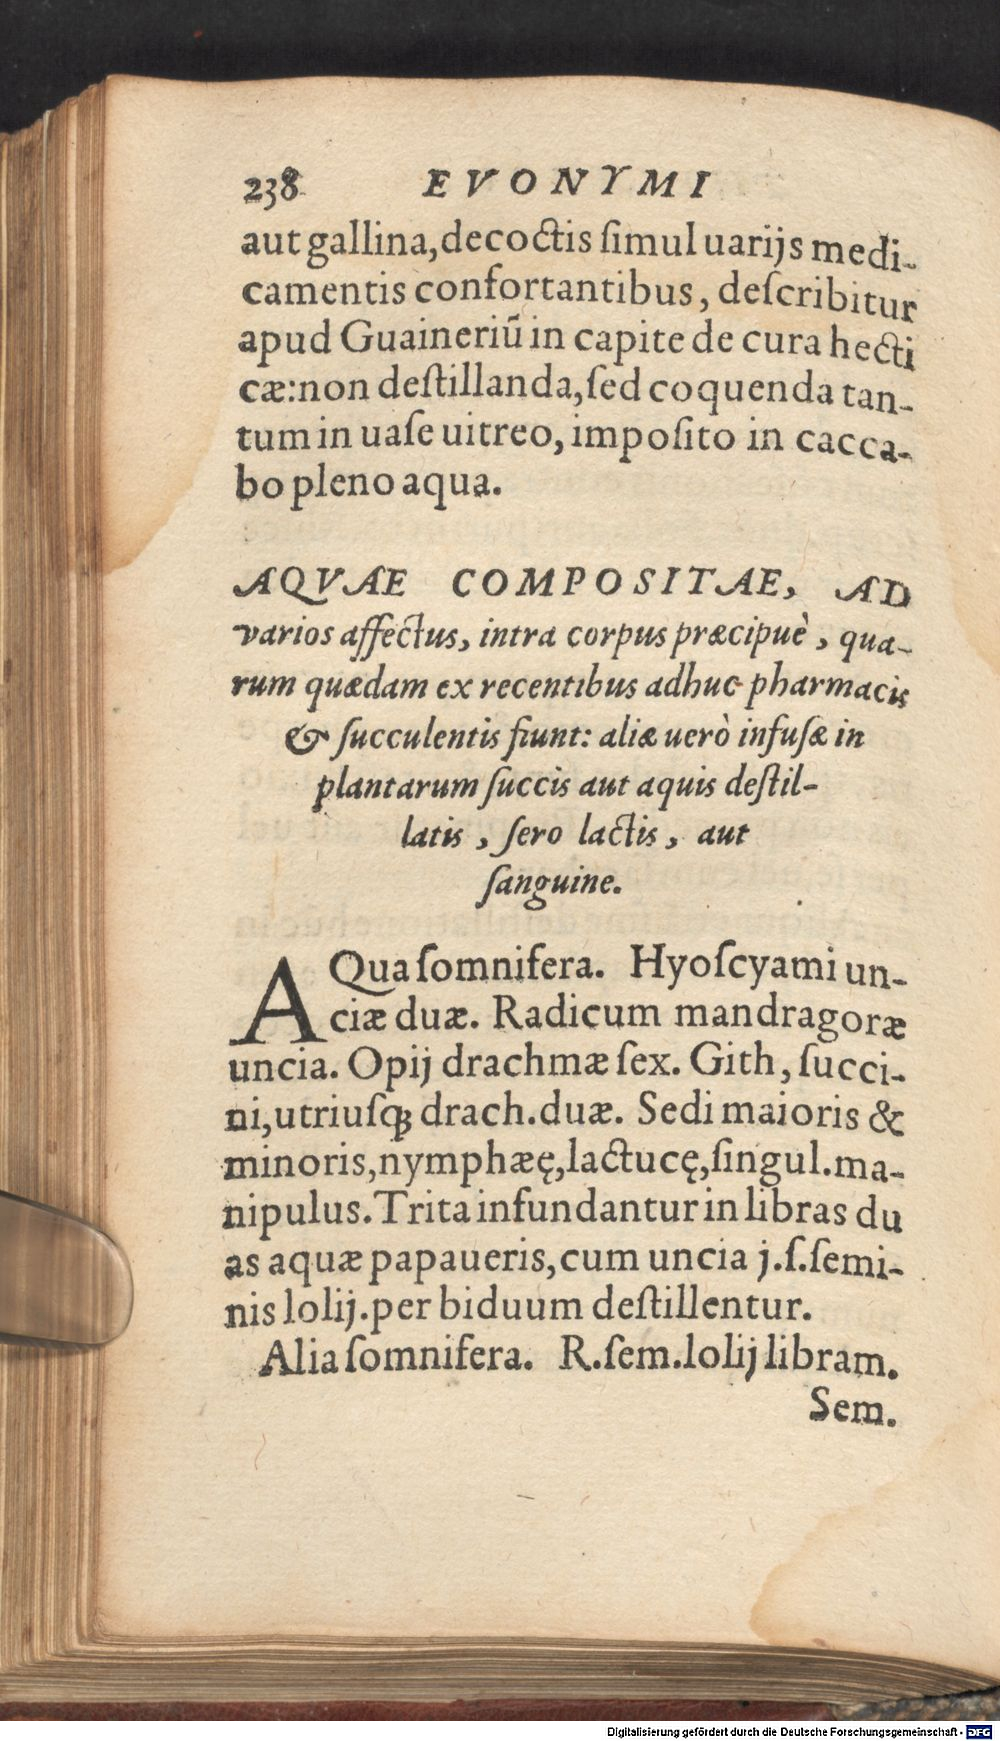 238 EVONYMI
aut gallina, decoctis ſimul uarijs medi-
camentis confortantibus, deſcribitur
apud Guaineriũ in capite de cura hecti
cæ: non deſtillanda, ſed coquenda tan-
tum in uaſe uitreo, impoſito in cacca-
bo pleno aqua.
AQVAE COMPOSITAE, AD
varios affectus, intra corpus præcipuè, qua-
rum quædam ex recentibus adhuc pharmacis
& ſucculentis fiunt: aliæ uerò infuſæ in
plantarum ſuccis aut aquis deſtil-
latis, ſero lactis, aut
ſanguine.
AQua ſomnifera. Hyoſcyami un-
ciæ duæ. Radicum mandragoræ
uncia. Opij drachmæ ſex. Gith, ſucci-
ni, utriuſq; drach. duæ. Sedi maioris &
minoris, nymphææ̨, lactucę, ſingul. ma-
nipulus. Trita infundantur in libras du
as aquæ papaueris, cum uncia j. ſ. ſemi-
nis lolij. per biduum deſtillentur.
Alia ſomnifera. R. ſem. lolij libram.
Sem.
Digitalisierung gefördert durch die Deutsche Forschungsgemeinschaft - DFG